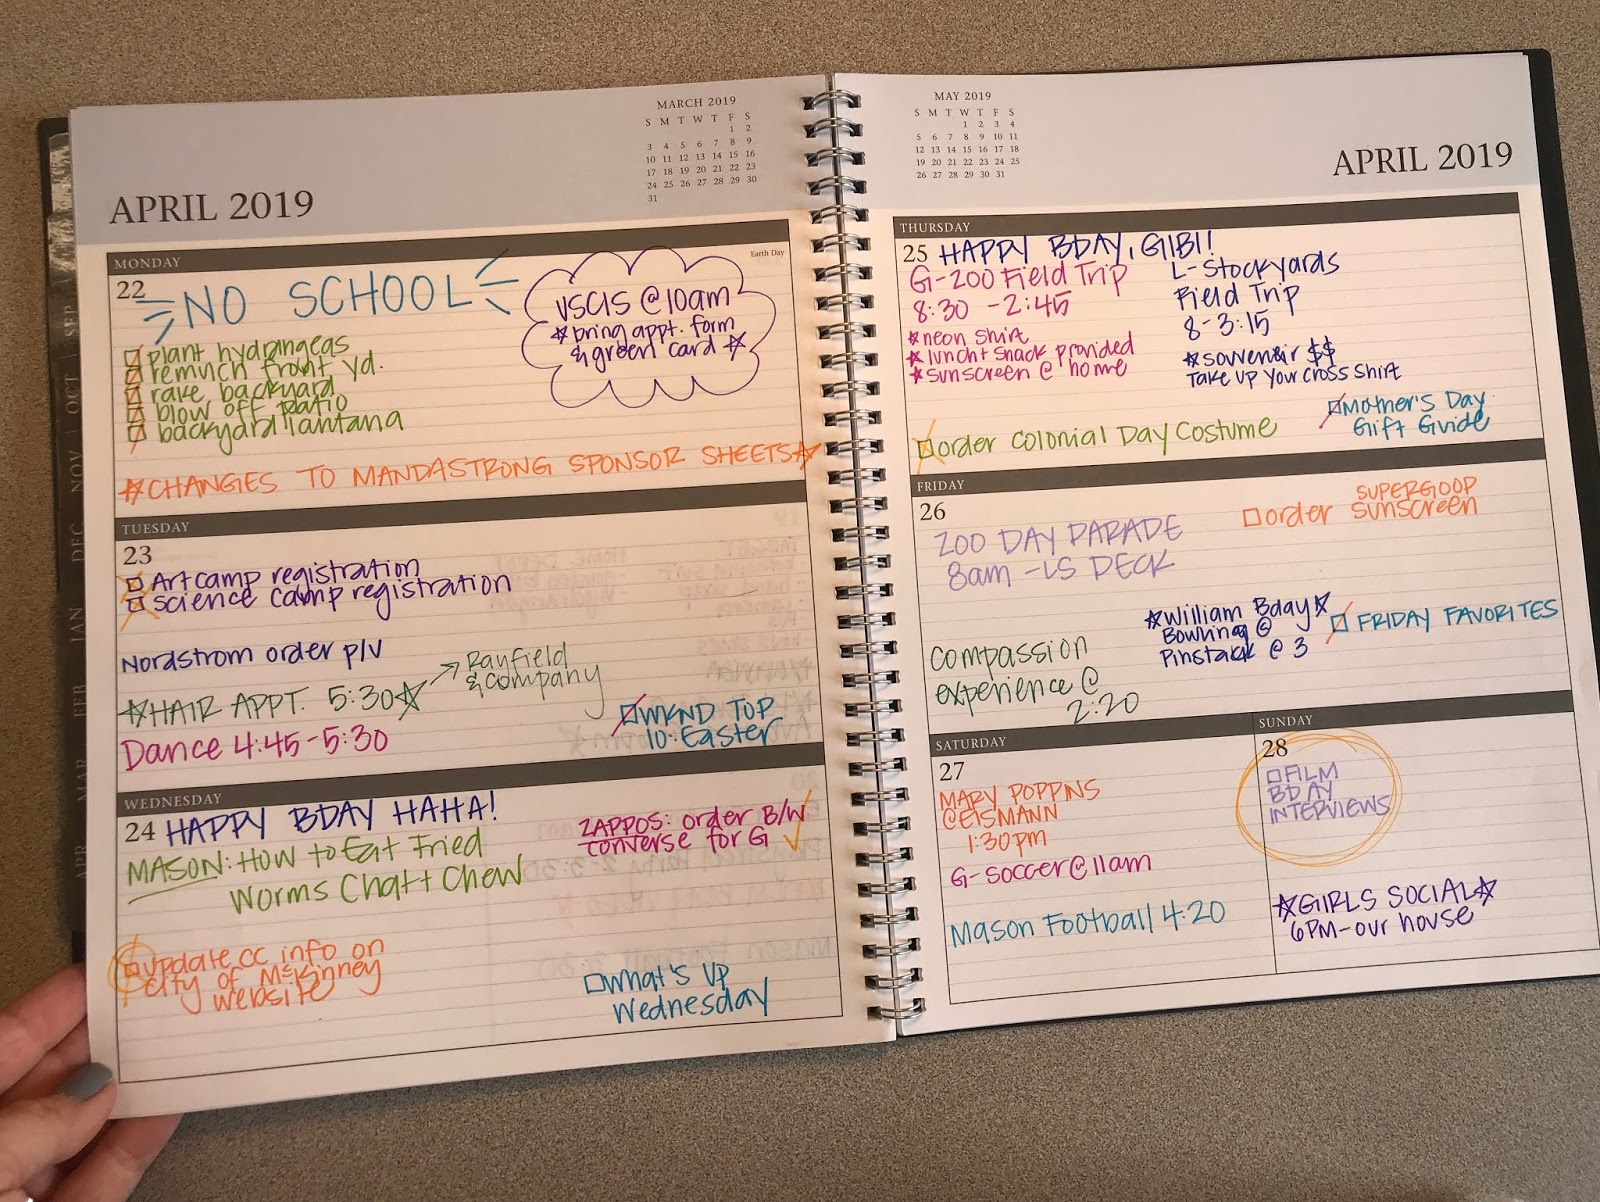 APRIL 2019
MARCH 2019
S M T W T F S
1 2
3 4 5 6 7 8 9
10 11 12 13 14 15 16
17 18 19 20 21 22 23
24 25 26 27 28 29 30
31
MONDAY
Earth Day
22
NO SCHOOL
USCIS @ 10am
☆ bring appt. form
& green card ☆
plant hydrangeas
remulch front yd.
rake backyard
blow off patio
backyard lantana
☆CHANGES TO MANDASTRONG SPONSOR SHEETS☆
TUESDAY
23
Art camp registration
science camp registration
Nordstrom order p/v
☆HAIR APPT. 5:30☆ → Rayfield
& company
Dance 4:45-5:30
WKND TOP
10: Easter
WEDNESDAY
24 HAPPY BDAY HAHA!
MASON: How to Eat Fried
Worms Chat + Chew
ZAPPOS: order B/W
converse for G ✓
update cc info on
city of McKinney
website
What's Up
Wednesday
SEP
OCT
NOV
DEC
JAN
FEB
MAR
APR
MAY 2019
S M T W T F S
1 2 3 4
5 6 7 8 9 10 11
12 13 14 15 16 17 18
19 20 21 22 23 24 25
26 27 28 29 30 31
APRIL 2019
THURSDAY
25 HAPPY BDAY, GIBI!
G-200 Field Trip
8:30 -2:45
☆neon shirt
☆lunch + snack provided
☆sunscreen @ home
L-Stockyards
Field Trip
8-3:15
☆souvenir $$
Take up your cross shirt
order Colonial Day Costume
Mother's Day
Gift Guide
FRIDAY
26
200 DAY PARADE
8am -LS DECK
order SUPERGOOP
sunscreen
☆William Bday☆
Bowling @
Pinstack @ 3
FRIDAY FAVORITES
compassion
experience @
2:20
SATURDAY
27
MARY POPPINS
@EISMANN
1:30pm
G-Soccer @ 11am
Mason Football 4:20
SUNDAY
28
FILM
BDAY
INTERVIEWS
☆GIRLS SOCIAL☆
6PM-our house